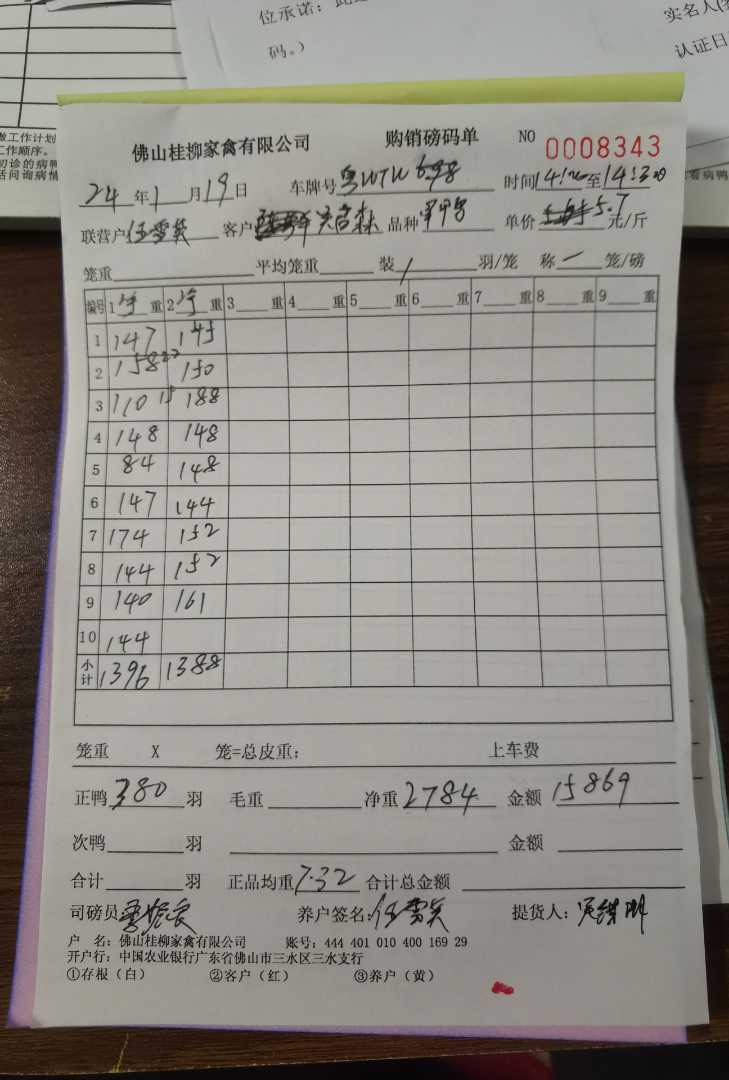 位承诺：
码。）
实名人
认证日
做工作计划
工作顺序。
初诊的病鸭
佛山桂柳家禽有限公司 购销磅码单 NO 0008343
24年1月19日 车牌号粤WTW698 时间14:20至14:30
联营户伍雪英 客户 品种 单价5.7元/斤
笼重 平均笼重 装/羽/笼 称一笼/磅
编号 1 重 2 重 3 重 4 重 5 重 6 重 7 重 8 重 9 重
1 147 145
2 158 22 150
3 110 15 188
4 148 148
5 84 148
6 147 144
7 174 152
8 144 152
9 140 161
10 144
小计 1396 1388
笼重 X 笼=总皮重： 上车费
正鸭380羽 毛重 净重2784 金额15869
次鸭 羽 金额
合计 羽 正品均重7.32 合计总金额
司磅员 养户签名：伍雪英 提货人：
户 名：佛山桂柳家禽有限公司 账号：444 401 010 400 169 29
开户行：中国农业银行广东省佛山市三水区三水支行
①存根（白） ②客户（红） ③养户（黄）